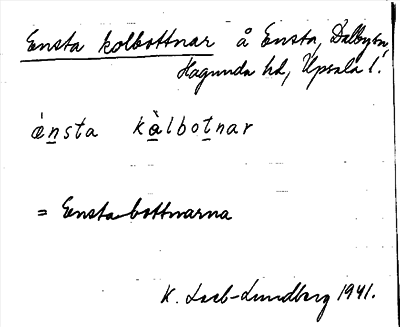 Ensta kolbottnar å Ensta, Dalbyn,
Hagunda hd, Upsala l.
énsta kàlbotnar
= Enstabottnarna
K. Loeb-Lundberg 1941.